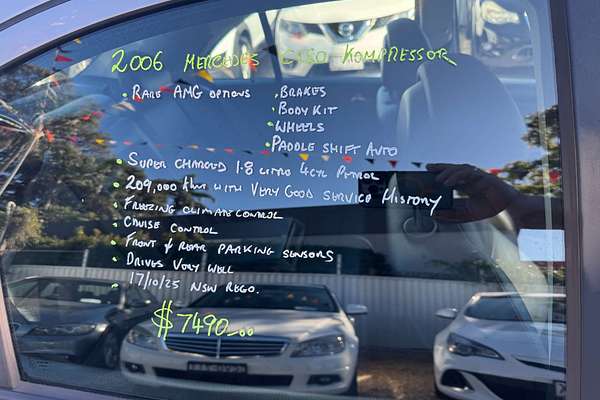 2006 MERCEDES C180 KOMPRESSOR
• RARE AMG OPTIONS
• BRAKES
• BODY KIT
• WHEELS
• PADDLE SHIFT AUTO
• SUPER CHARGED 1.8 LITRE 4CYL PETROL
• 209,000 KM WITH VERY GOOD SERVICE HISTORY
• FREEZING CLIMATE CONTROL
• CRUISE CONTROL
• FRONT & REAR PARKING SENSORS
• DRIVES VERY WELL
• 17/10/25 NSW REGO.
$7490.00